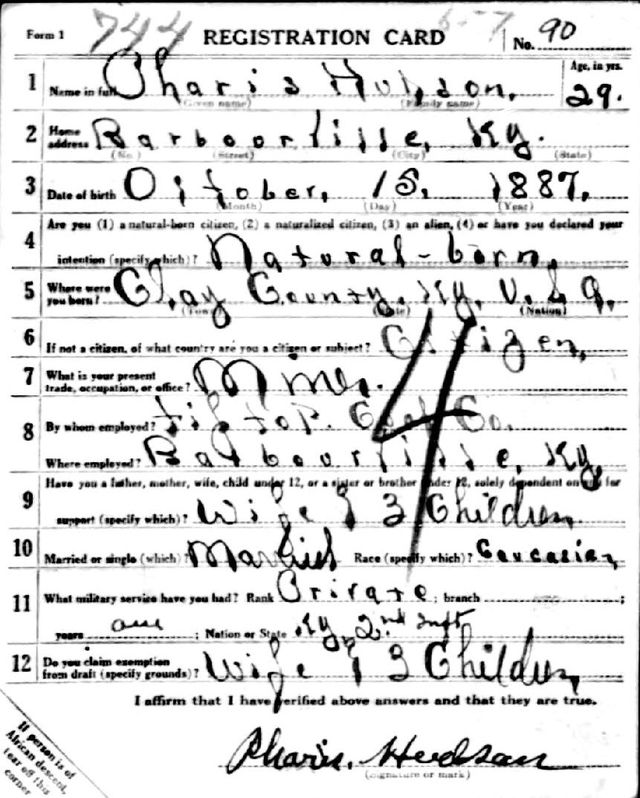 Form 1 744 REGISTRATION CARD No. 90
1 Name in full Pharis Hudson, Age, in yrs. 29.
(Given name) (Family name)
2 Home address Barbourville, Ky.
(No.) (Street) (City) (State)
3 Date of birth October, 15, 1887,
(Month) (Day) (Year)
Are you (1) a natural-born citizen, (2) a naturalized citizen, (3) an alien, (4) or have you declared your
4 intention (specify which)? Natural-born,
5 Where were you born? Clay County, Ky, U.S.A,
(Town) (State) (Nation)
6 If not a citizen, of what country are you a citizen or subject? Citizen,
7 What is your present trade, occupation, or office? Miner.
4
8 By whom employed? Tip Top. Coal Co.
Where employed? Barbourville, Ky,
Have you a father, mother, wife, child under 12, or a sister or brother under 12, solely dependent on you for
9 support (specify which)? Wife & 3 Children,
10 Married or single (which)? Married Race (specify which)? Caucasian,
11 What military service have you had? Rank Private; branch ;
years one ; Nation or State Ky, 2nd Inft
12 Do you claim exemption from draft (specify grounds)? Wife & 3 Children,
I affirm that I have verified above answers and that they are true.
Pharis, Hudson
(Signature or mark)
If person is of
African descent,
tear off this
corner